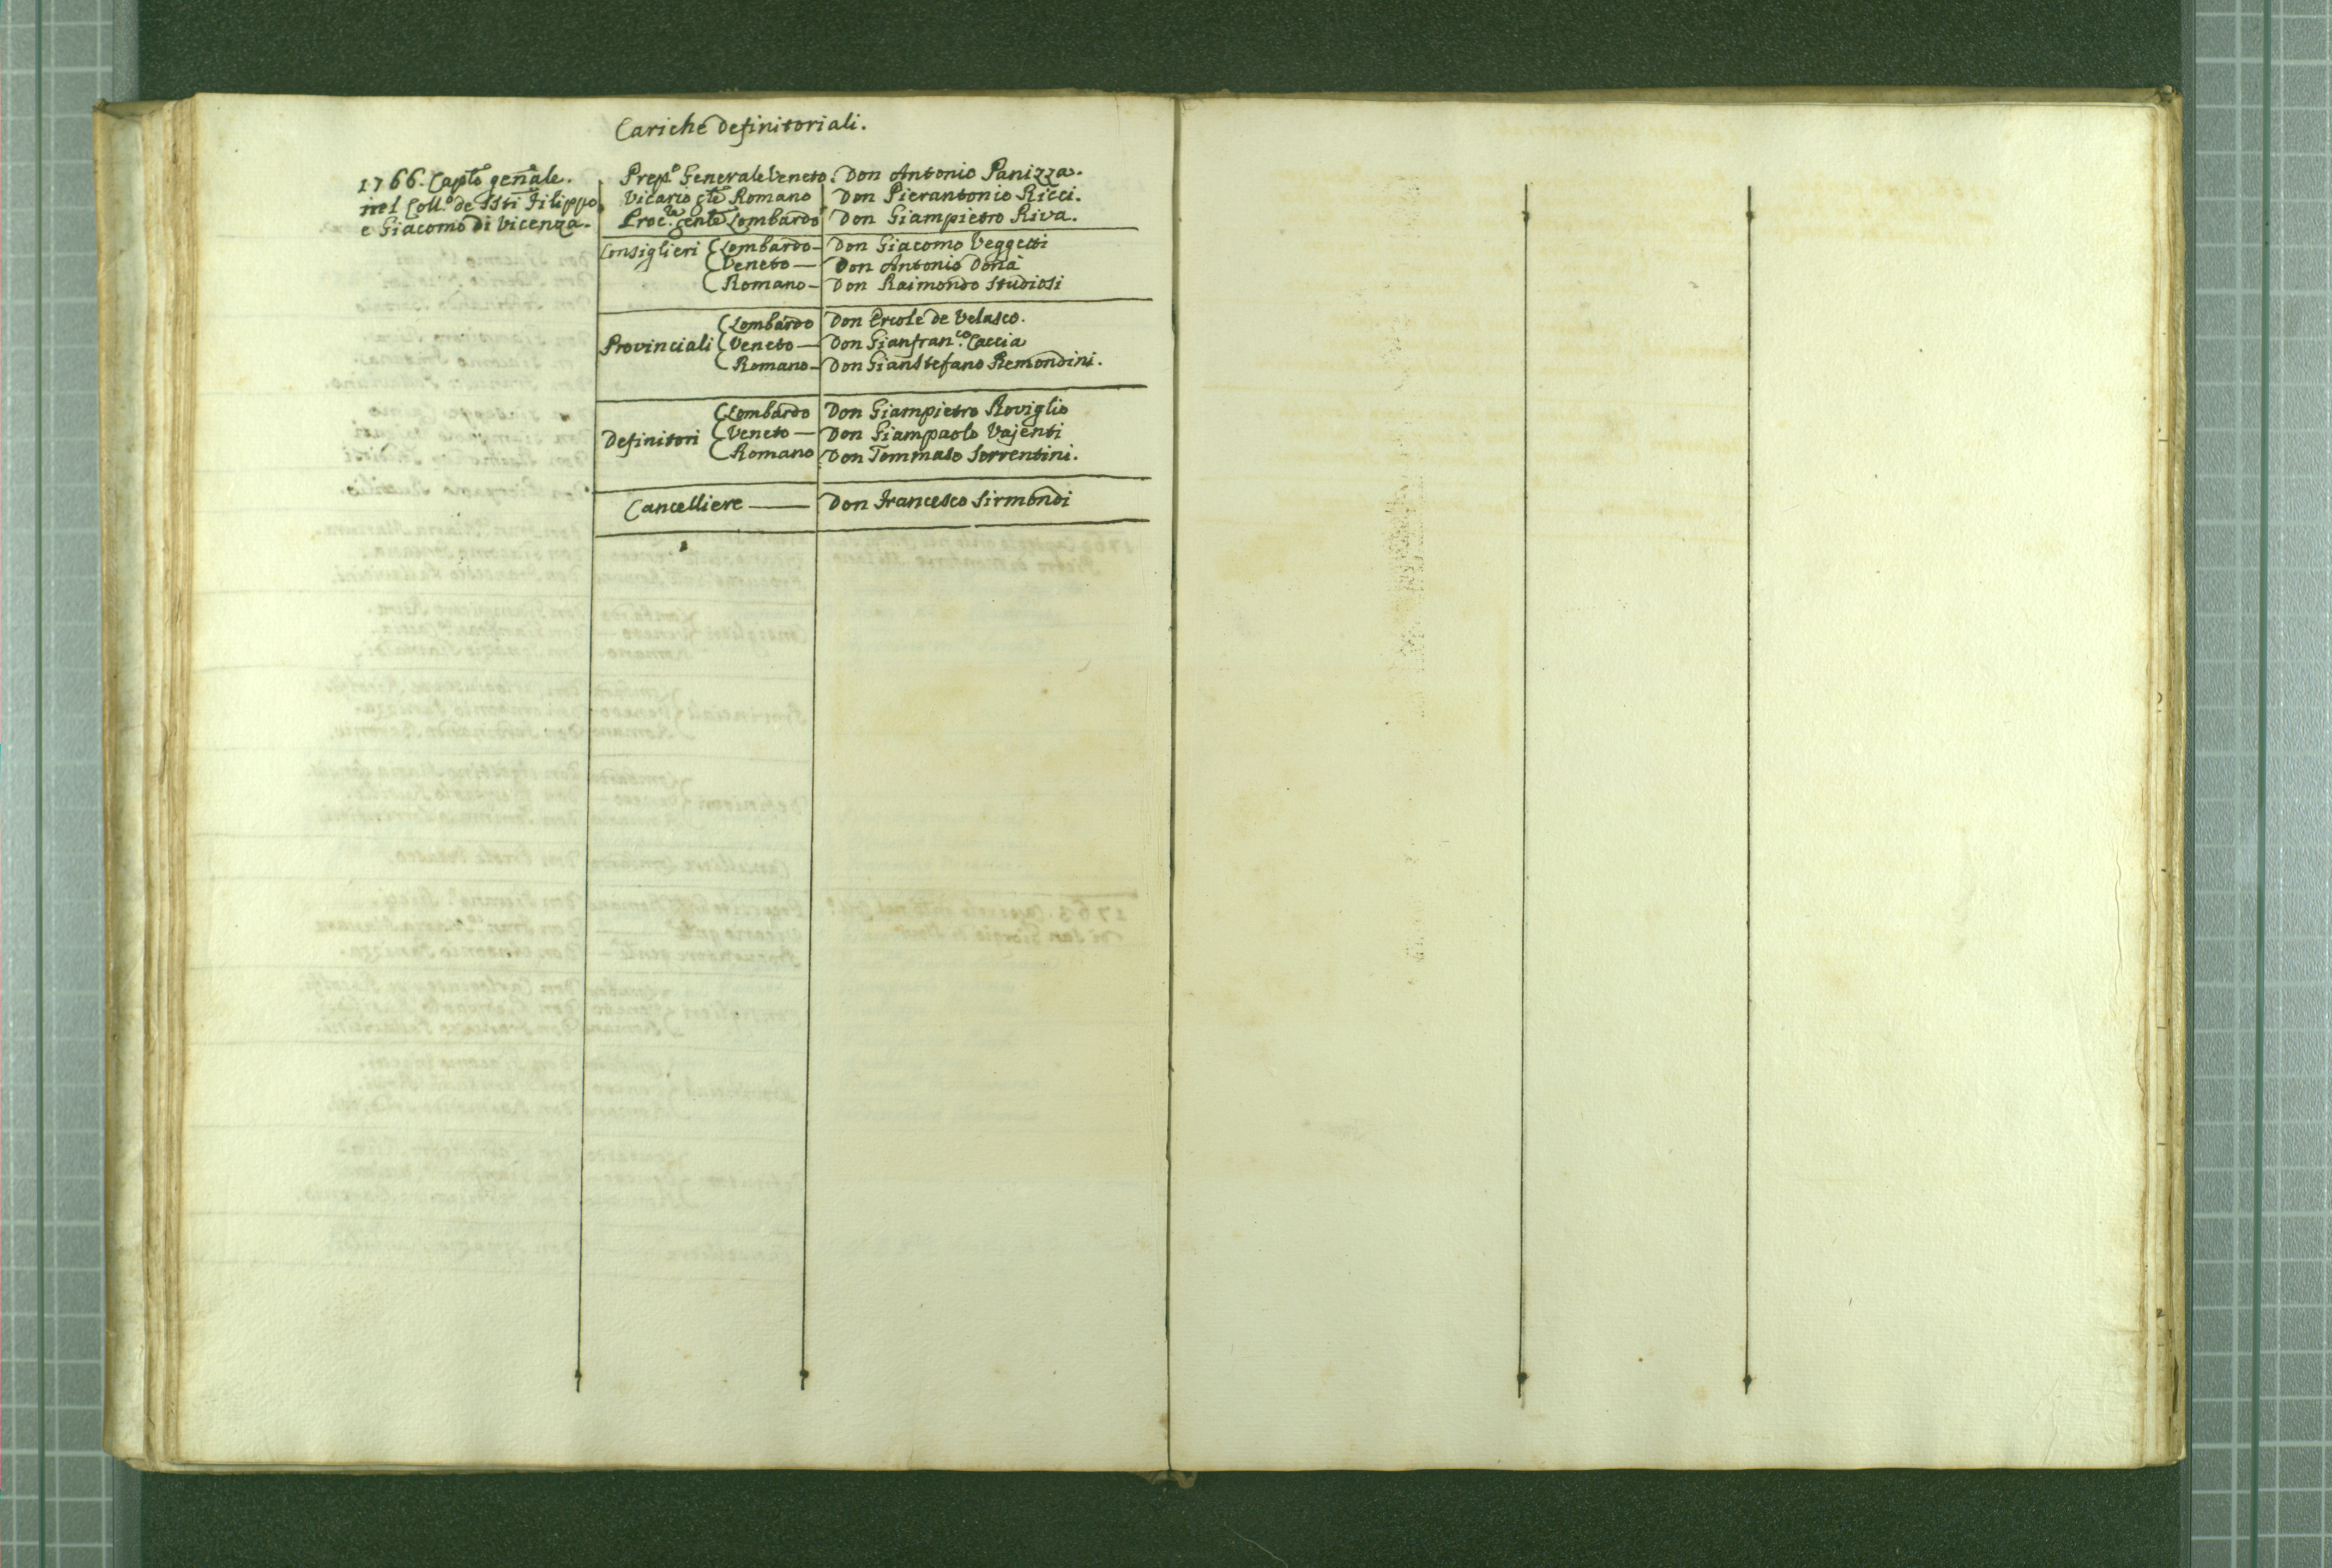 Cariche Definitoriali.
1766. Caplo genale.
nel Coll.o de SSti Filippo
e Giacomo di Vicenza.
Prep.o Generale Veneto. Don Antonio Panizza.
Vicario gle Romano Don Pierantonio Ricci.
Proc.re genle Lombardo Don Giampietro Riva.
Consiglieri Lombardo - Don Giacomo Veggetti
Veneto — Don Antonio Donà
Romano - Don Raimondo Studiosi
Lombardo Don Ercole de Velasco.
Provinciali Veneto — Don Gianfran.co Caccia
Romano - Don GianStefano Remondini.
Lombardo Don Giampietro Roviglio
Definitori Veneto — Don Giampaolo Vajenti
Romano Don Tommaso Sorrentini.
Cancelliere — Don Francesco Sirmondi